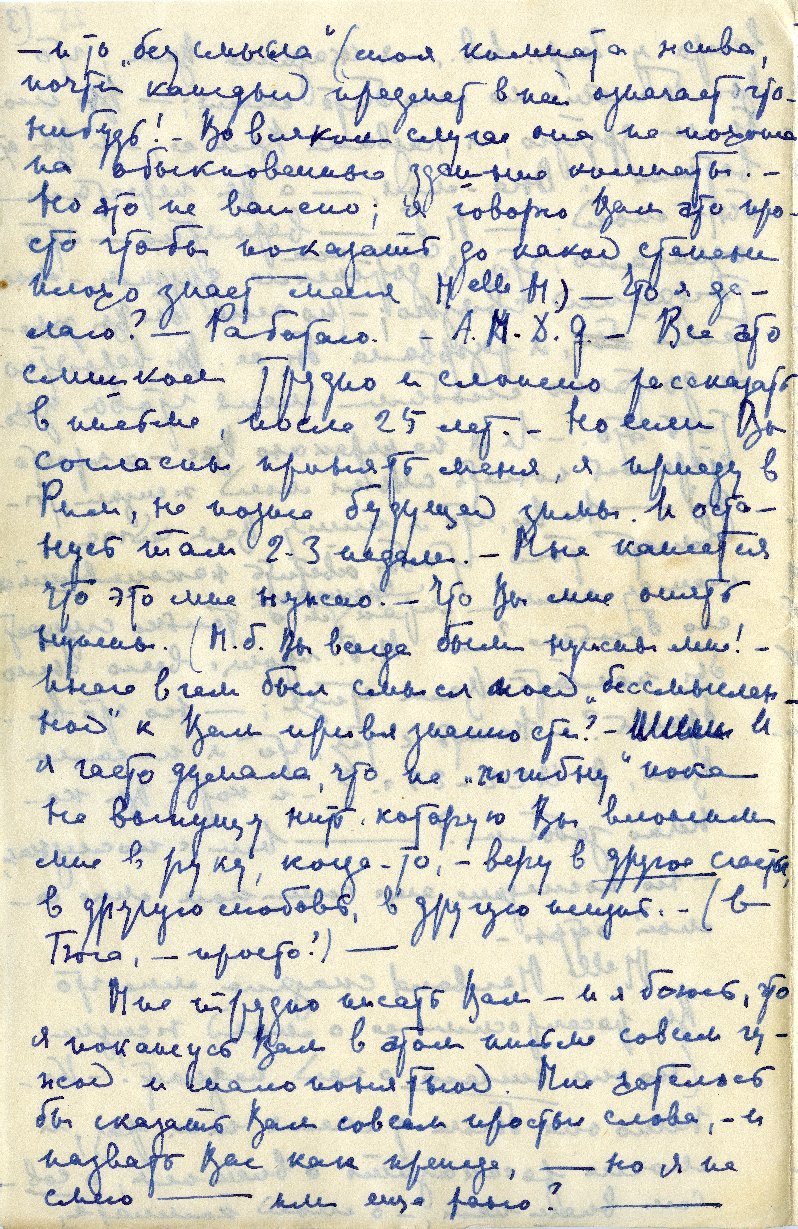 — и то „без смысла“ (моя комната жива,
почти каждый предмет в ней означает что-
нибудь! — Во всяком случае она не похожа
на обыкновенные здешние комнаты. —
Но это не важно; я говорю Вам это про-
сто чтобы показать до какой степени
плохо знает меня Melle M) — Что я де-
лаю? — Работаю. — А.М.Д.Д. — Все это
слишком трудно и сложно рассказать
в письме, после 25 лет. — Но если Вы
согласны принять меня, я приеду в
Рим, не позже будущей зимы. И оста-
нусь там 2-3 недели. — Мне кажется
что это мне нужно. — Что Вы мне опять
нужны. (М.б. Вы всегда были нужны мне! —
Иначе в чем был смысл моей „бессмыслен-
ной“ к Вам привязанности? — И
я часто думала, что не „погибну“ пока
не выпущу нить которую Вы вложили
мне в руку, когда-то, — веру в другое счастье,
в другую любовь, в другую жизнь. — (в
Бога, — просто!) —
Мне трудно писать Вам — и я боюсь, что
я покажусь Вам в этом письме совсем чу-
жой и мало понятной. Мне хотелось
бы сказать Вам совсем простые слова, — и
назвать Вас как прежде, — но я не
смею — или еще рано? —